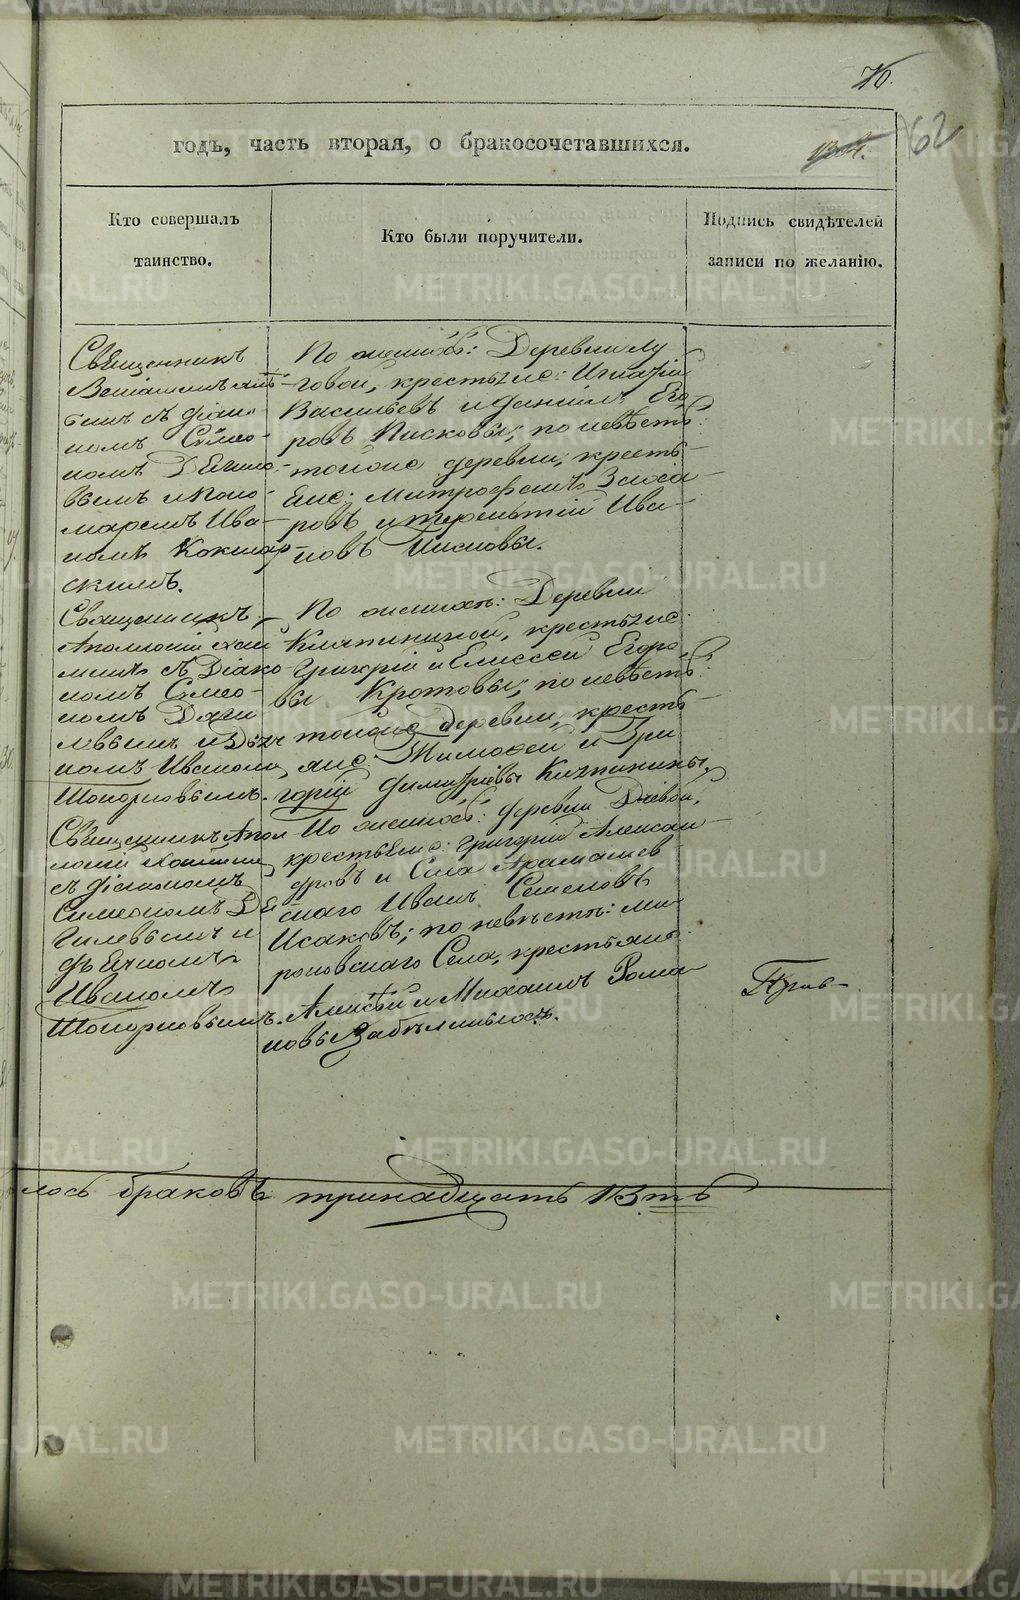 70.
годъ, часть вторая, о бракосочетавшихся.
62
Кто совершалъ
таинство.
Кто были поручители.
Подпись свидѣтелей
записи по желанію.
Священникъ
Веніаминъ
съ Діако-
номъ Симео-
номъ
вымъ и поно-
маремъ Ива-
номъ Кокшар-
скимъ.
По женихѣ: Деревни Лу
говой, крестьяне: Игнатій
Васильевъ и Даніилъ Его
ровъ Писковы; по невѣстѣ:
тойже деревни, кресть-
яне: Митрофанъ
ровъ и Терентій Ива-
новъ
Священникъ
Аполлоній
съ Діако
номъ Симео-
номъ Дяги
левымъ и Дьяч
комъ Иваномъ
Топорковымъ.
По женихѣ: Деревни
крестьяне:
Григорій и Елисей Егоро
вы Кротовы; по невѣстѣ:
тойже деревни, кресть-
яне: Тимофей и Гри
горій Димитріевы
Священникъ Апол
лоній
съ Діакономъ
Симеономъ Дя
гилевымъ и
дьячкомъ
Иваномъ
Топорковымъ.
По женихѣ: деревни Діевой,
крестьяне: Григорій Алексан
дровъ и Села Арамашев
скаго Иванъ Семеновъ
Исаковъ; по невѣстѣ: Ми-
роновскаго Села, крестьяне:
Алексѣй и Михаилъ Рома
новы
лось браковъ тринадцать 13ть